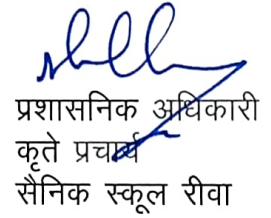 प्रशासनिक अधिकारी
कृते प्राचार्य
सैनिक स्कूल रीवा